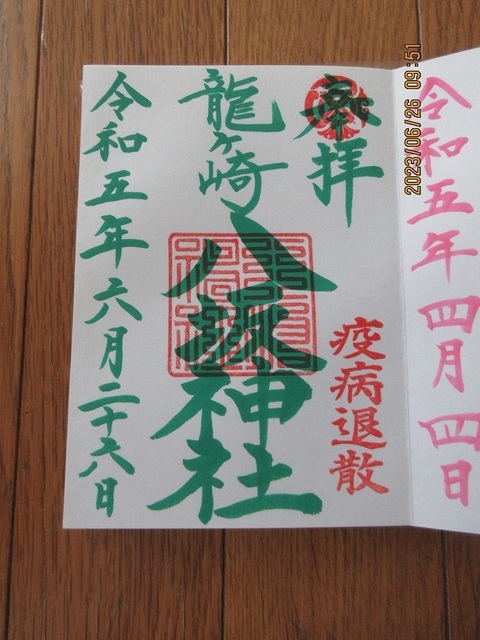 奉拝
疫病退散
龍ケ崎
八坂神社
令和五年六月二十六日
令和五年四月四日
2023/06/26 09:51